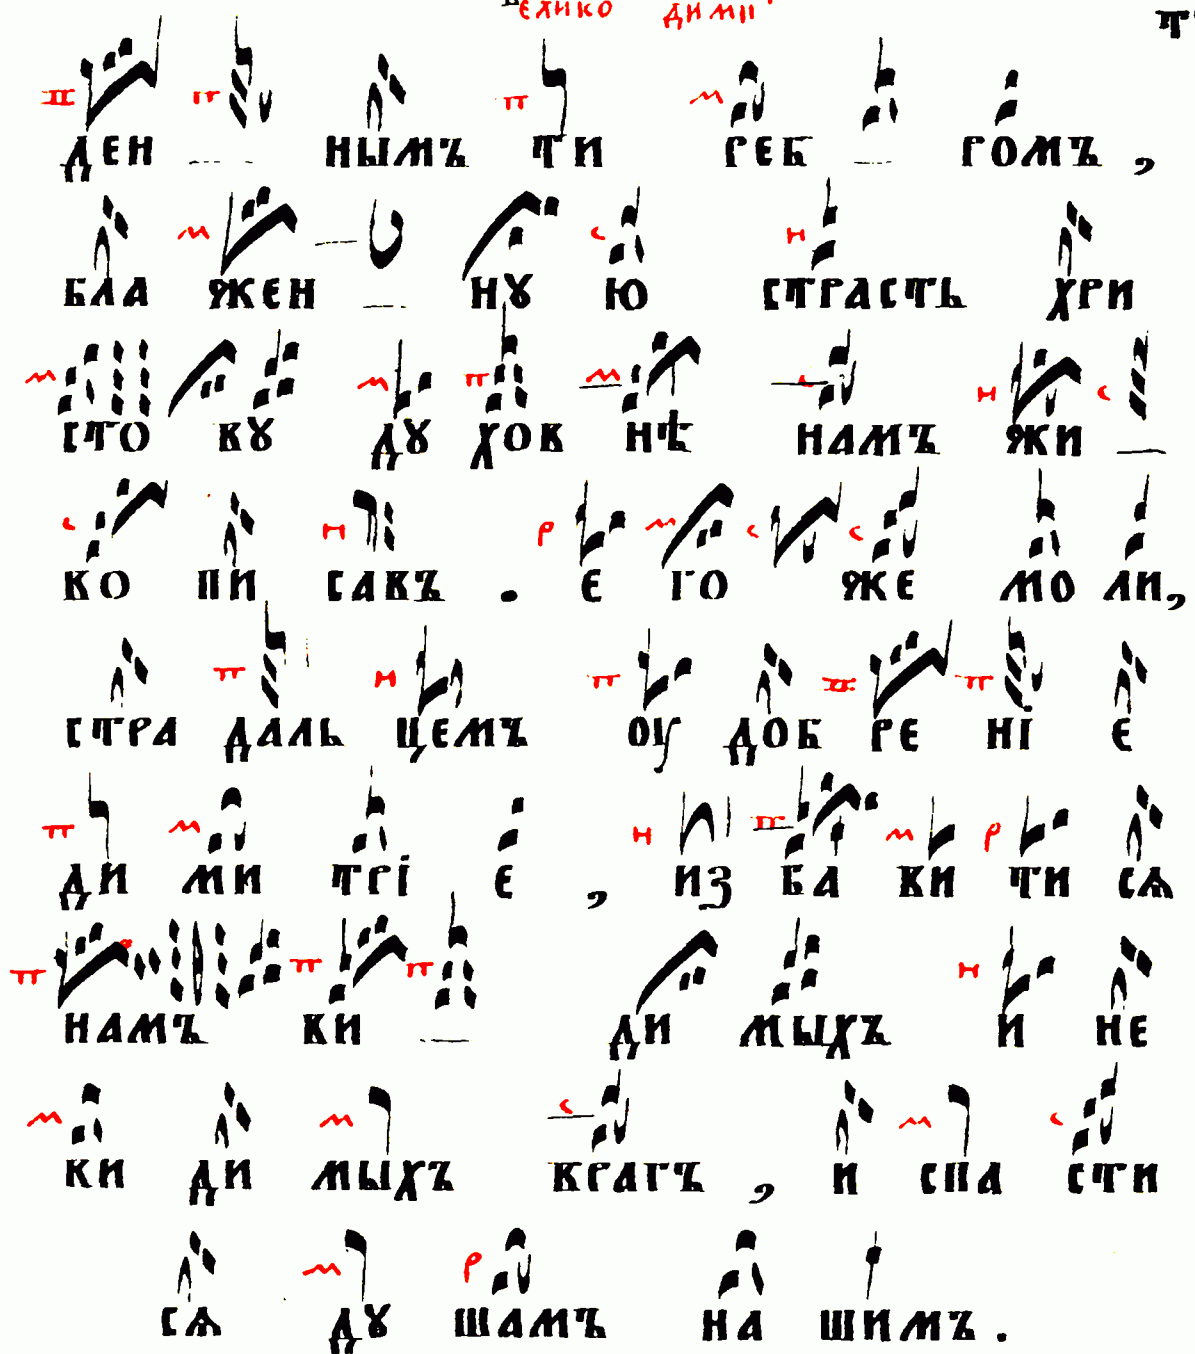 елико дими
ден нымъ ти реб ромъ ,
бла жен нꙋ ю страсть хри
сто вꙋ дꙋ хов нѣ намъ жи
во пи савъ . е го же мо ли,
стра даль цемъ оу доб ре нї е
ди ми трї е , из ба ви ти сѧ
намъ ви ди мыхъ и не
ви ди мыхъ врагъ , и спа сти
сѧ дꙋ шамъ на шимъ .